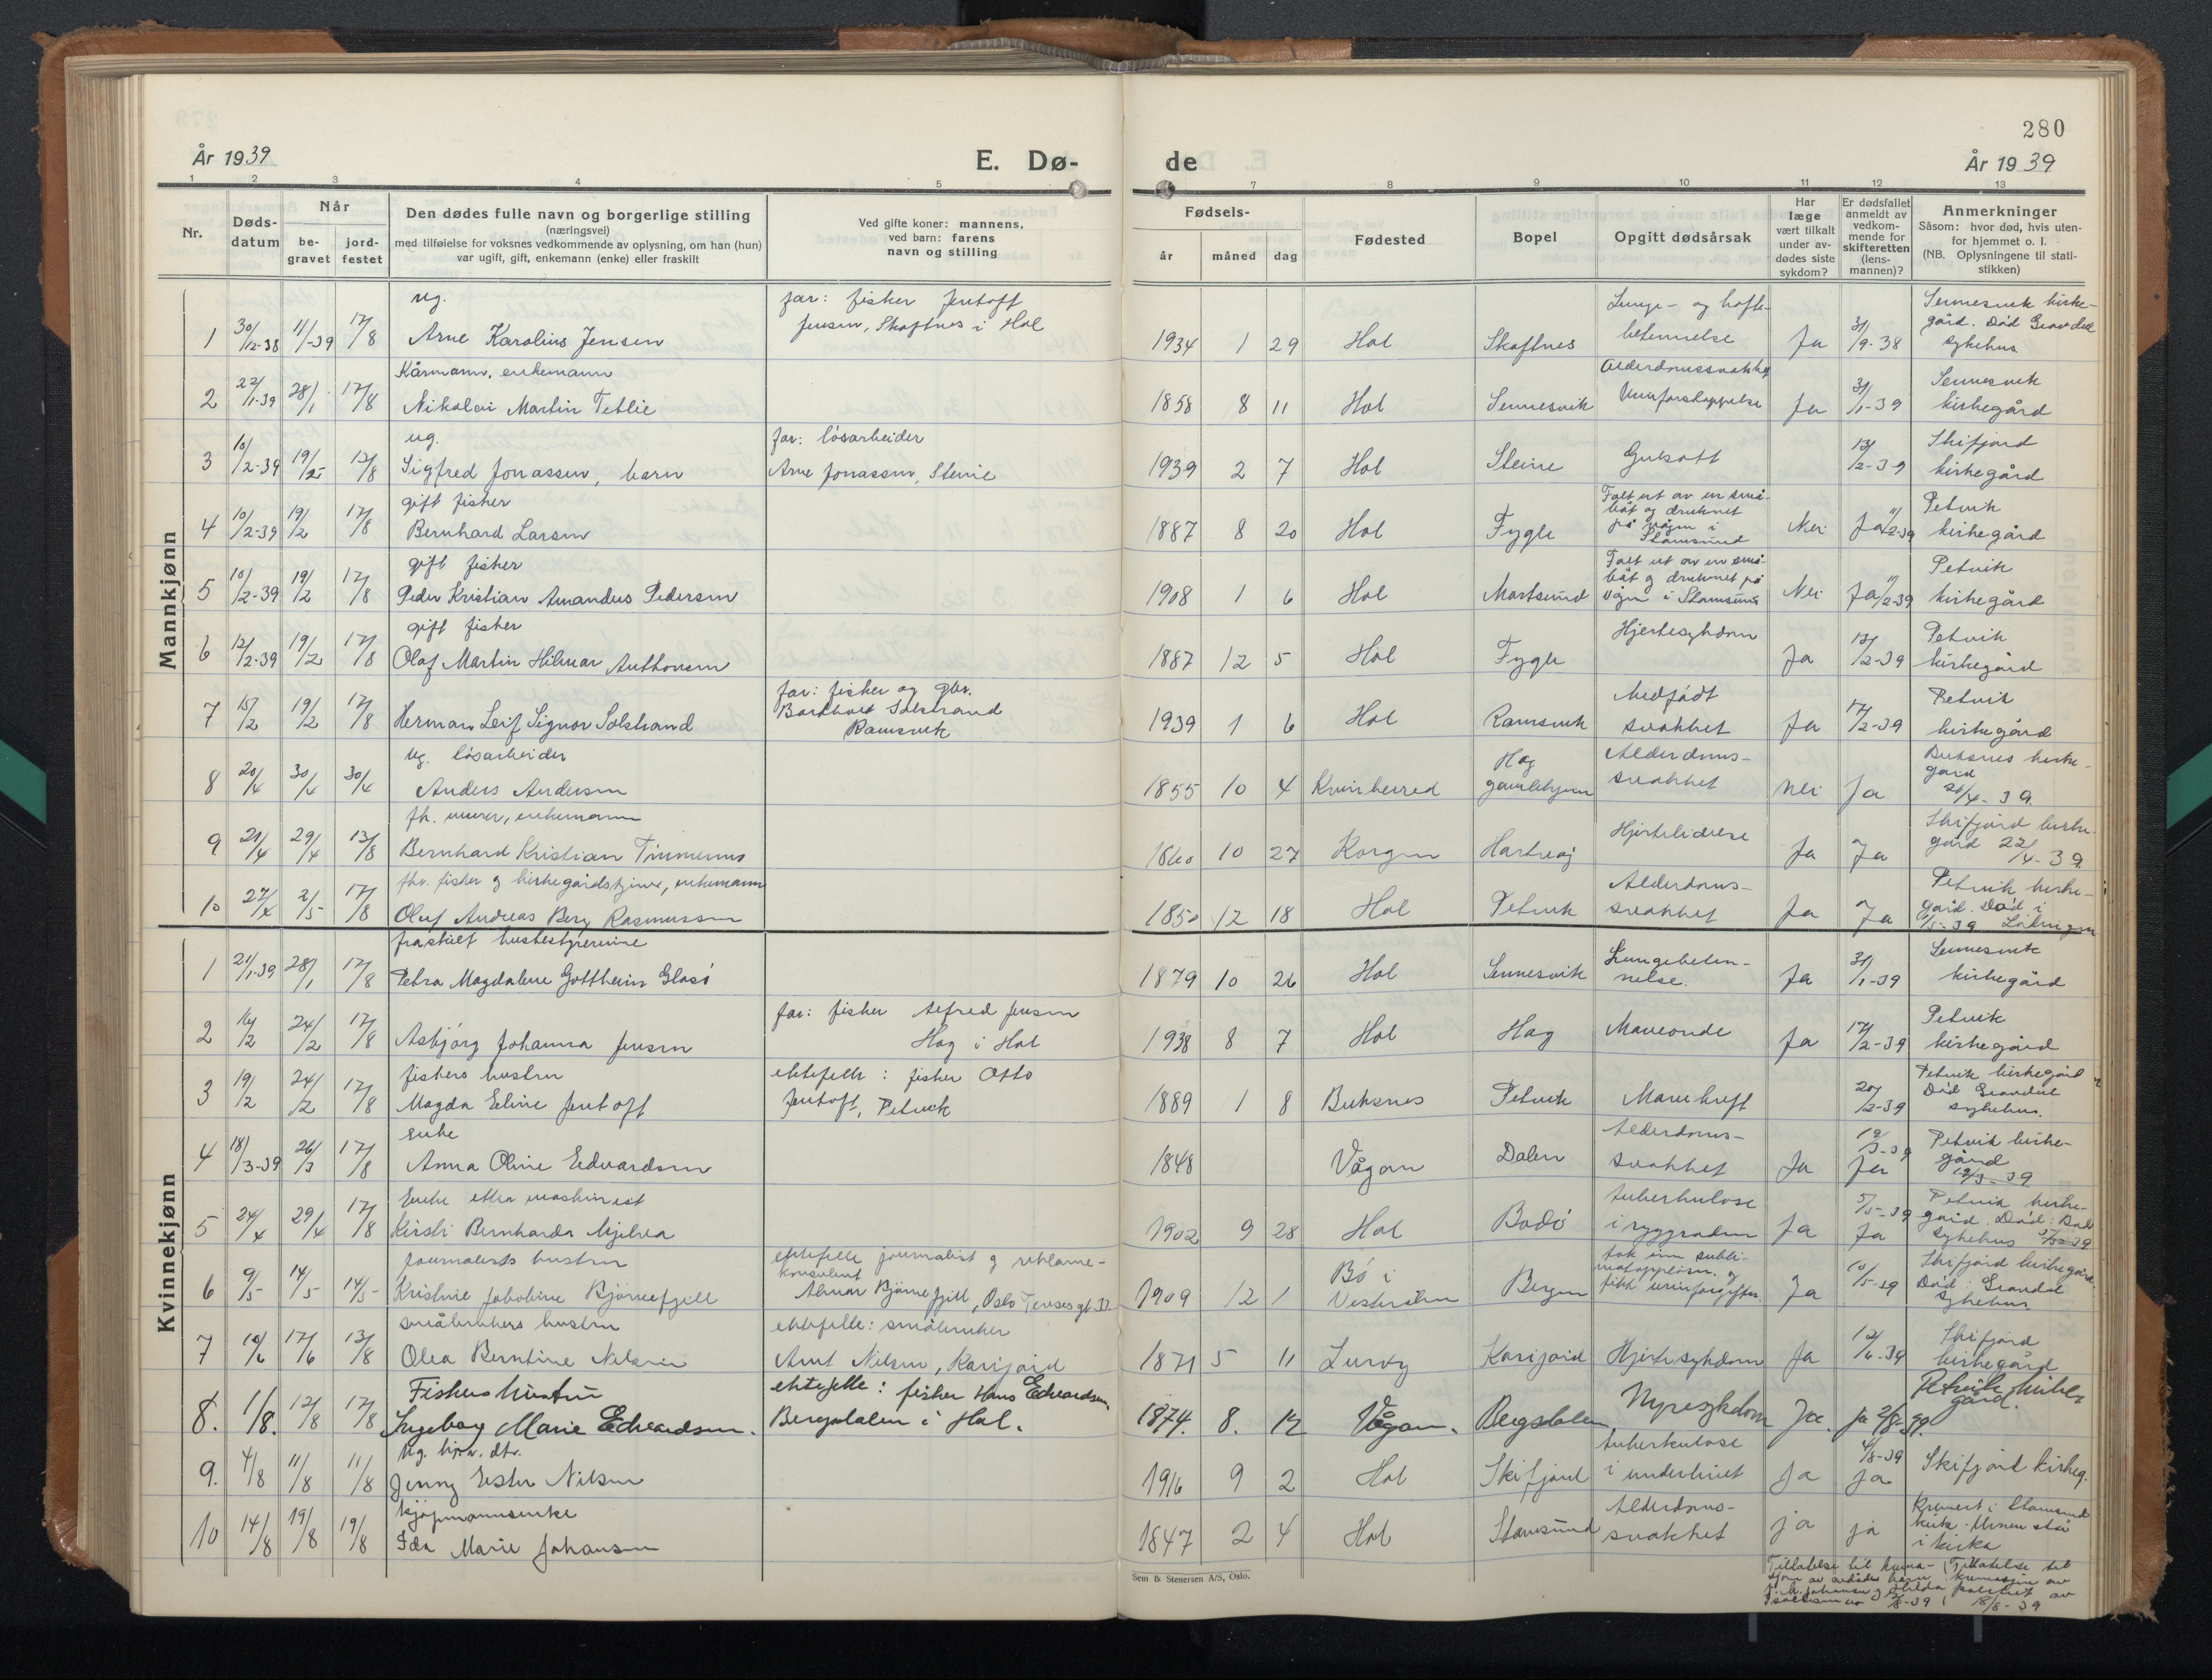 280
År 1939
E. Dø-
de
År 1939
1 2 3 4 5 7 8 9 10 11 12 13
Nr.
Døds-
datum
Når
be-
gravet
jord-
festet
Den dødes fulle navn og borgerlige stilling
(næringsvei)
med tilføielse for voksnes vedkommende av oplysning, om han (hun)
var ugift, gift, enkemann (enke) eller fraskilt
Ved gifte koner: mannens,
ved barn: farens
navn og stilling
Fødsels-
år måned dag
Fødested
Bopel
Opgitt dødsårsak
Har
læge
vært tilkalt
under av-
dødes siste
sykdom?
Er dødsfallet
anmeldt av
vedkom-
mende for
skifteretten
(lens-
mannen)?
Anmerkninger
Såsom: hvor død, hvis uten-
for hjemmet o. l.
(NB. Oplysningene til stati-
stikken)
Mannkjønn
ug. far: fisker Jentoft Lunge- og hofte- Sennesvik kirke-
1 30/12-38 11/1-39 17/8 Arne Karolius Jensen Jensen, Skaftnes i Hol 1934 1 29 Hol Skaftnes betennelse Ja 31/9-38 gård. Død Gravdal
sykehus
Kårmann, enkemann Alderdomssvakhet Sennesvik
2 22/1-39 28/1 17/8 Nikolai Martin Tetlie 1858 8 11 Hol Sennesvik Urinforstoppelse Ja 31/1-39 kirkegård
ug. far: løsarbeider Skifjord
3 10/2-39 19/2 13/8 Sigfred Jonassen, barn Arne Jonassen, Steine 1939 2 7 Hol Steine Gulsott 13/2-39 kirkegård
gift fisker Falt ut av en små-
båt og druknet Petvik
4 10/2-39 19/2 17/8 Bernhard Larsen 1887 8 20 Hol Fygle på vågen i
Stamsund Nei Ja 11/2-39 kirkegård
gift fisker Falt ut av en små-
båt og druknet på Petvik
5 10/2-39 19/2 17/8 Peder Kristian Amandus Pedersen 1908 1 6 Hol Mortsund vågen i Stamsund Nei Ja 11/2-39 kirkegård
gift fisker Hjertesykdom Petvik
6 12/2-39 19/2 17/8 Olaf Martin Hilmar Anthonsen 1887 12 5 Hol Fygle Ja 13/2-39 kirkegård
far: fisker og gbr. Medfødt Petvik
7 15/2 19/2 17/8 Herman Leif Signor Solstrand Solstrand
Ramsvik 1939 1 6 Hol Ramsvik svakhet Ja 17/2-39 kirkegård
ug. løsarbeider Hag Alderdoms- Buksnes kirke-
gård
8 20/4 30/4 30/4 Anders Andersen 1855 10 4 Kvinherred gamlehjem svakhet Nei Ja 21/4-39.
fh. murer, enkemann Hjertelidelse Skifjord kirke-
9 21/4 29/4 13/8 Bernhard Kristian Timmermo 1860 10 27 Korgen Hartvåg Ja Ja gård 22/4-39.
fhv. fisker og kirkegårdstjener, enkemann Alderdoms- Petvik kirke-
10 27/4 2/5 17/8 Oluf Andreas Berg Rasmussen 1850 12 18 Hol Petvik svakhet Ja Ja gård. Død i
1/5-39
Kvinnekjønn
fraskilt husbestyrerinne Lungebeten- Sennesvik
1 21/1-39 28/1 17/8 Petra Magdalene Gottheim Glasø 1879 10 26 Hol Sennesvik nelse. Ja 31/1-39 kirkegård
far: fisker Alfred Jensen Petvik
2 16/2 24/2 17/8 Asbjørg Johanna Jensen Hag i Hol 1938 8 7 Hol Hag Maveonde Ja 17/2-39 kirkegård
fiskers hustru ektefelle: fisker Otto Petvik kirkegård
3 19/2 24/2 17/8 Magda Eline Jentoft Jentoft, Petvik 1889 1 8 Buksnes Petvik Mavekreft 20/2-39 Død Gravdal
sykehus.
enke Alderdoms- 19/3-39 Petvik kirke-
4 18/3-39 26/3 17/8 Anna Oline Edvardsen 1848 Vågan Dalen svakhet Ja Ja gård
19/3-39
Enke etter maskinist tuberkulose 5/5-39 Petvik kirke-
5 24/4 29/4 17/8 Kirsti Bernharda Mjelva 1902 9 28 Hol Bodø i ryggraden Ja Ja gård. Død: Bodø
sykehus 5/5-39
Journalists hustru ektefelle journalist og reklame-
konsulent tok inn subli-
matoppløsn. og Skifjord kirkegård.
6 9/5 14/5 14/5 Kristine Jakobine Bjørnefjell Almar Bjørnefjell, Oslo 1909 12 1 Bø i
Vesterålen Bergen fikk urinforgiftn. Ja 10/5-39 Død: Gravdal
sykehus.
småbrukers hustru ektefelle: småbruker Skifjord
7 10/6 17/6 13/8 Olea Berntine Nilsen Arnt Nilsen, Karijord 1871 5 11 Lurøy Karijord Hjertesykdom Ja 12/6-39 kirkegård
Fiskers hustru ektefelle: fisker Hans Edvardsen, Petvik kirke-
gård.
8. 1/8. 12/8 17/8 Ingeborg Marie Edvardsen. Bergsdalen i Hol. 1874. 8. 17 Vågan. Bergsdalen Nyresykdom Ja. ja 2/8-39.
Ug. hjv. dtr. tuberkulose 4/8-39
9. 4/8 11/8 11/8 Jenny Ester Nilsen 1916 9 2 Hol Skifjord i underlivet Ja Ja Skifjord kirkeg.
kjøpmannsenke Alderdoms- Kremert i Stamsund
10 14/8 19/8 19/8 Ida Marie Johansen 1847 2 4 Hol Stamsund svakhet ja ja kirke. Urnen står
i kirka
Sem & Stenersen A/S, Oslo.
Tillatelse til krema- Tillatelse til
sjon av avdødes barn kremasjon av
J. M. Johansen og Hilda politiet av
18/8-39